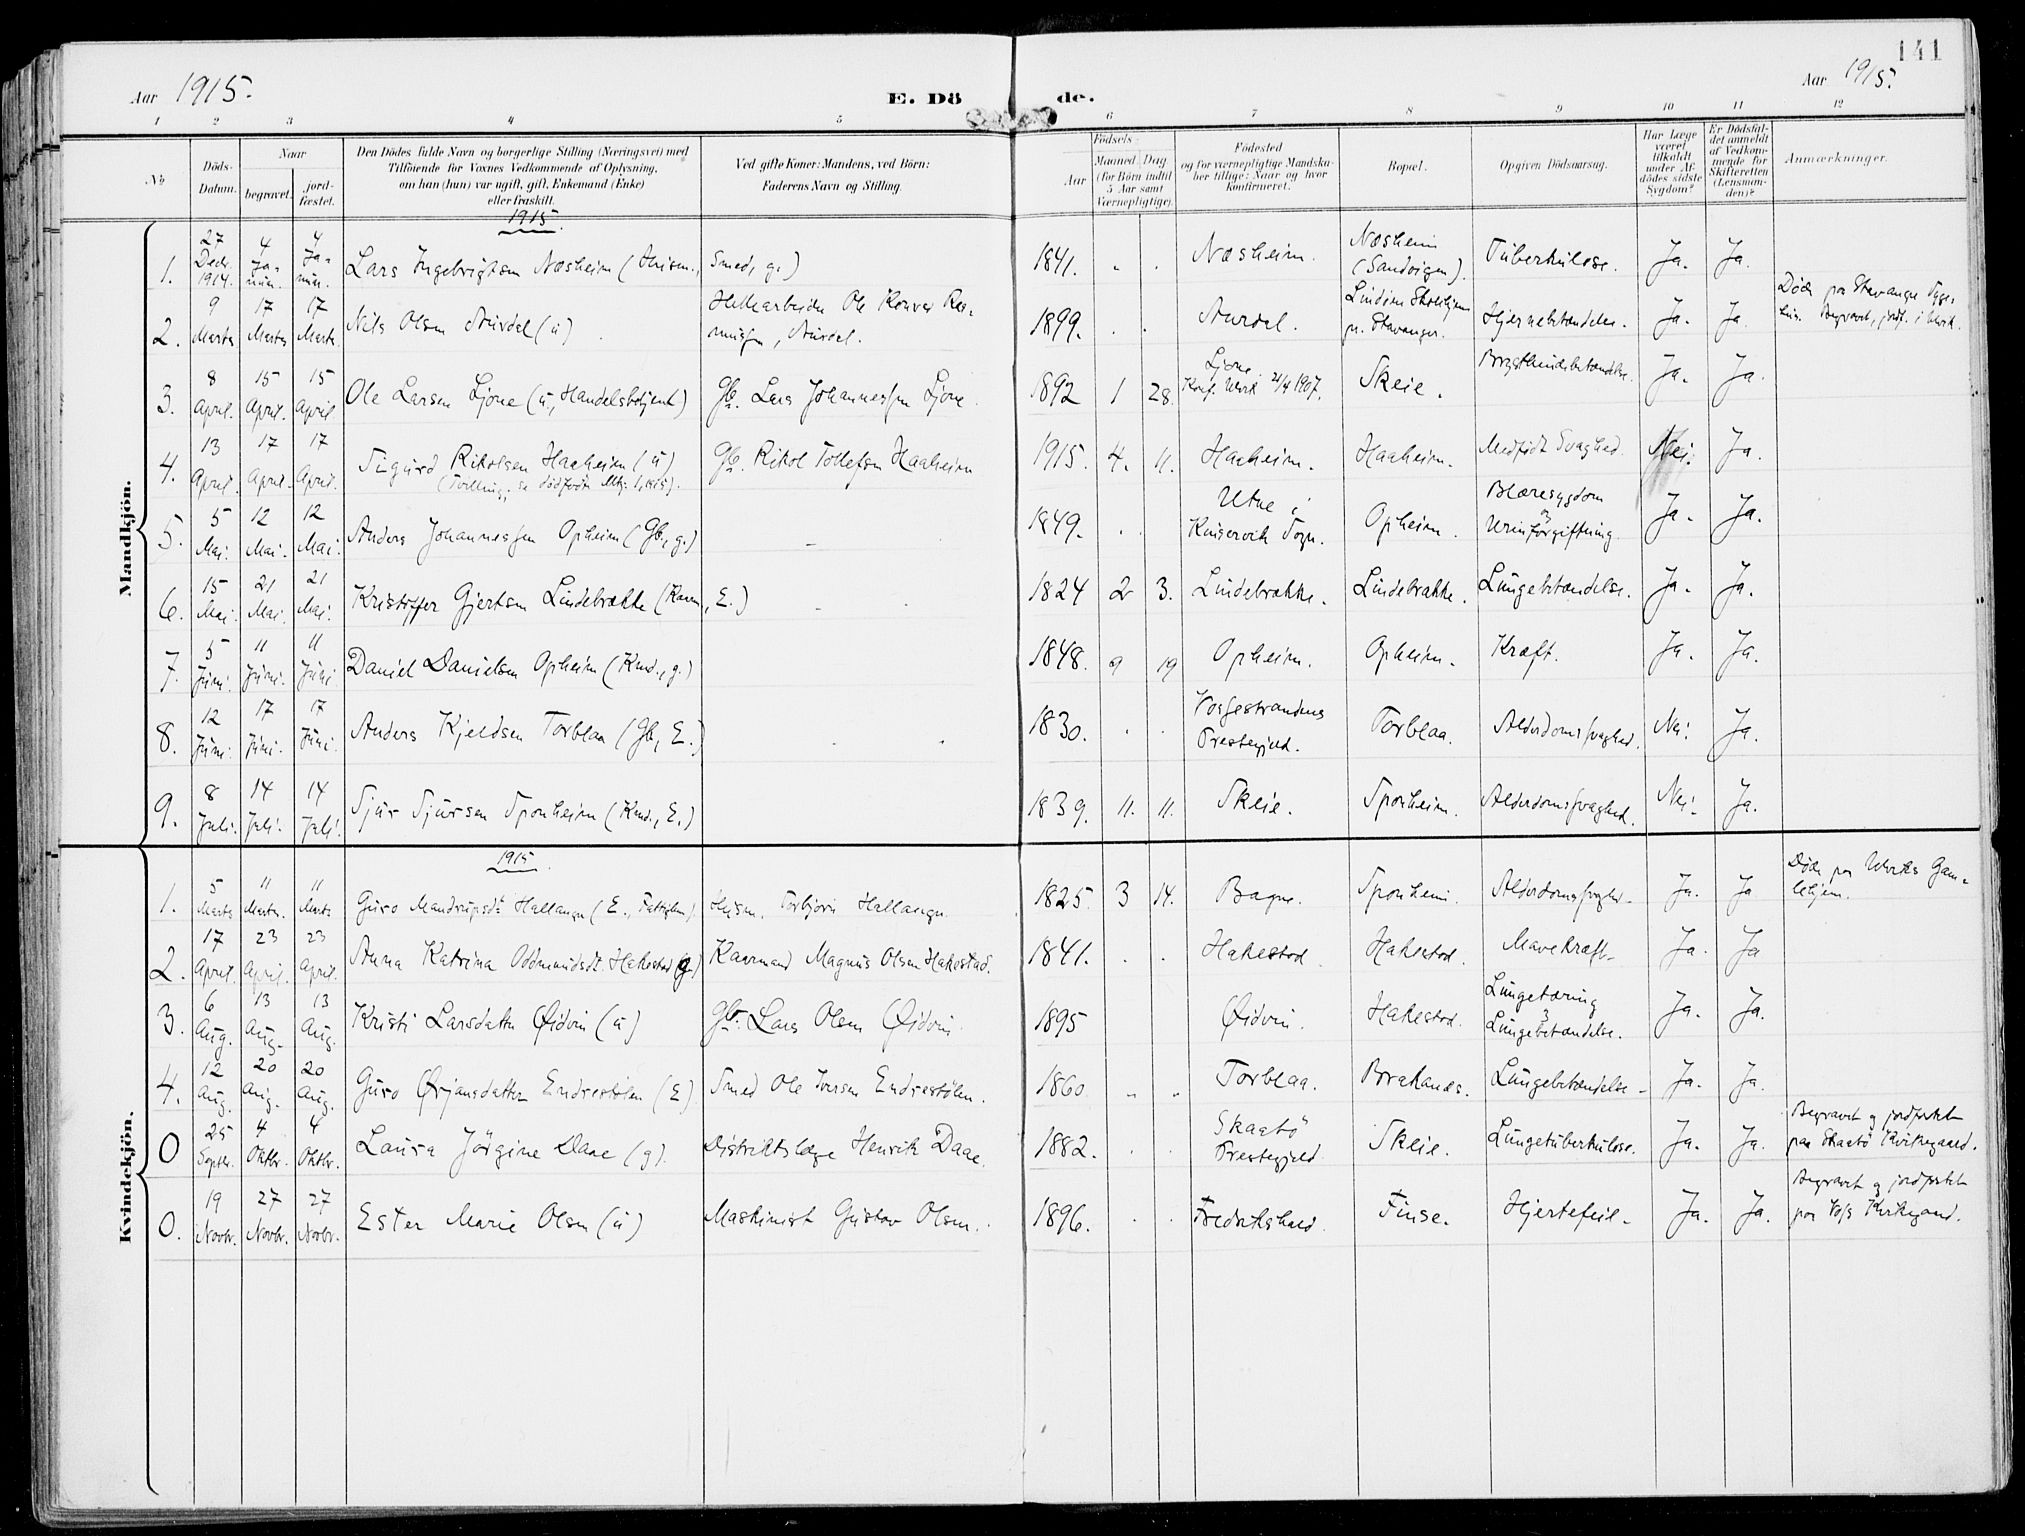 141
Aar 1915.
E. Döde.
Aar 1915.
1 2 3 4 5 6 7 8 9 10 11 12
No
Döds-Datum.
Naar
begravet.
jord-fæstet.
Den Dödes fulde Navn og borgerlige Stilling (Næringsvei) med
Tilföiende for Voxnes Vedkommende af Oplysning,
om han (hun) var ugift, gift, Enkemand (Enke)
eller fraskilt.
Ved gifte Koner: Mandens, ved Börn:
Faderens Navn og Stilling.
Födsels-
Aar
Maaned Dag
(for Börn indtil
5 Aar samt
Værnepligtige).
Födested
og for værnepligtige Mandska-
ber tillige: Naar og hvor
konfirmeret.
Bopæl.
Opgiven Dödsaarsag.
Har Læge
været
tilkaldt
under Af-
dödes sidste
Sygdom?
Er Dödsfal-
det anmeldt
af Vedkom-
mende for
Skifteretten
(Lensman-
den)?
Anmærkninger.
Mandkjön.
1915.
1. 27 Decbr. 1914. 4 Januar. 4 Januar. Lars Ingebrigtsen Næsheim (Husm., Smed, g.) 1841. Næsheim. Næsheim (Sandvigen). Tuberkulose. Ja. Ja.
2. 9 Marts 17 Marts 17 Marts. Nils Olsen Aurdal (u) Ole Aurdal. 1899. Aurdal. Lindøen Skolehjem p. Stavanger. Hjernebetændelse. Ja. Ja. Døde paa Stavanger Syge-
hus. Begravet, jordf. i Ulvik.
3. 8 April. 15 April. 15 April Ole Larsen Ljone (u., Handelsbetjent) Gb. Lars Johannessen Ljone. 1892 1 28. Ljone. Konf. Ulvik 21/4 1907. Skeie. Brysthindebetændelse. Ja. Ja.
4. 13 April. 17 April. 17 April. Sigurd Rikolsen Haaheim (u) Gb. Rikol Tollefsen Haaheim 1915. 4. 11. Haaheim. Haaheim. Medfødt Svaghed. Nei. Ja.
(Tvilling; se dødfødte Mkj. 1, 1915).
5. 5 Mai. 12 Mai. 12 Mai. Anders Johannessen Opheim (Gb., g.) - 1849. Utne i Kinservik Sogn. Opheim. Blæresygdom og Urinforgiftning. Ja. Ja.
6. 15 Mai. 21 Mai. 21 Mai. Kristoffer Gjertsen Lindebrække (Kaarm., E.) 1824 2 3. Lindebrække. Lindebrække. Lungebetændelse. Ja. Ja.
7. 5 Juni. 11 Juni. 11 Juni Daniel Danielsen Opheim (Kmd., g.) 1848. 9 19 Opheim. Opheim. Kræft. Ja. Ja.
8. 12 Juni. 17 Juni. 17 Juni. Anders Kjeldsen Torblaa (Gb., E.) 1830. Vossestrandens Prestegjeld. Torblaa. Alderdomssvaghed. Nei. Ja.
9. 8 Juli. 14 Juli. 14 Juli. Sjur Sjursen Sponheim (Kmd., E.) 1839. 11. 11. Skeie. Sponheim. Alderdomssvaghed. Nei. Ja.
Kvindekjön.
1915.
1. 5 Marts 11 Marts. 11 Marts Guro Mandrupsdt. Hallanger (E., Fattiglem) Husm. Torbjørn Hallanger. 1825. 3 14. Bagne. Sponheim. Alderdomssvaghed. Ja. Ja Døde paa Ulviks Gam-
lehjem.
2. 17 April. 23 April. 23 April. Anna Katrina Oddmundsdt. Hakestad (g.) Kaarmand Magnus Olsen Hakestad. 1841. Hakestad. Hakestad. Mavekræft. Ja. Ja
3. 6 Aug. 13 Aug. 13 Aug. Kristi Larsdatter Øidvin (u) Gbr. Lars Olsen Øidvin. 1895 Øidvin. Hakestad. Lungetæring & Lungebetændelse. Ja. Ja.
4. 12 Aug. 20 Aug. 20 Aug. Guro Ørjansdatter Endrestølen (E) Smed Ole Iversen Endrestølen. 1860 Torblaa. Brakanæs. Lungebetændelse. Ja. Ja.
0 25 Septbr. 4 Oktbr. 4 Oktbr. Laura Jörgine Daae (g). Distriktslæge Henrik Daae. 1882. Skaatö Prestegjeld. Skeie. Lungetuberkulose. Ja. Ja. Begravet og jordfæstet
paa Skaatö Kirkegaard.
0. 19 Novbr. 27 Novbr. 27 Novbr. Ester Marie Olsen (u) Maskinist Gustav Olsen. 1896. Fredrikshald. Finse. Hjertefeil. Ja. Ja. Begravet og jordfæstet
paa Voss Kirkegaard.